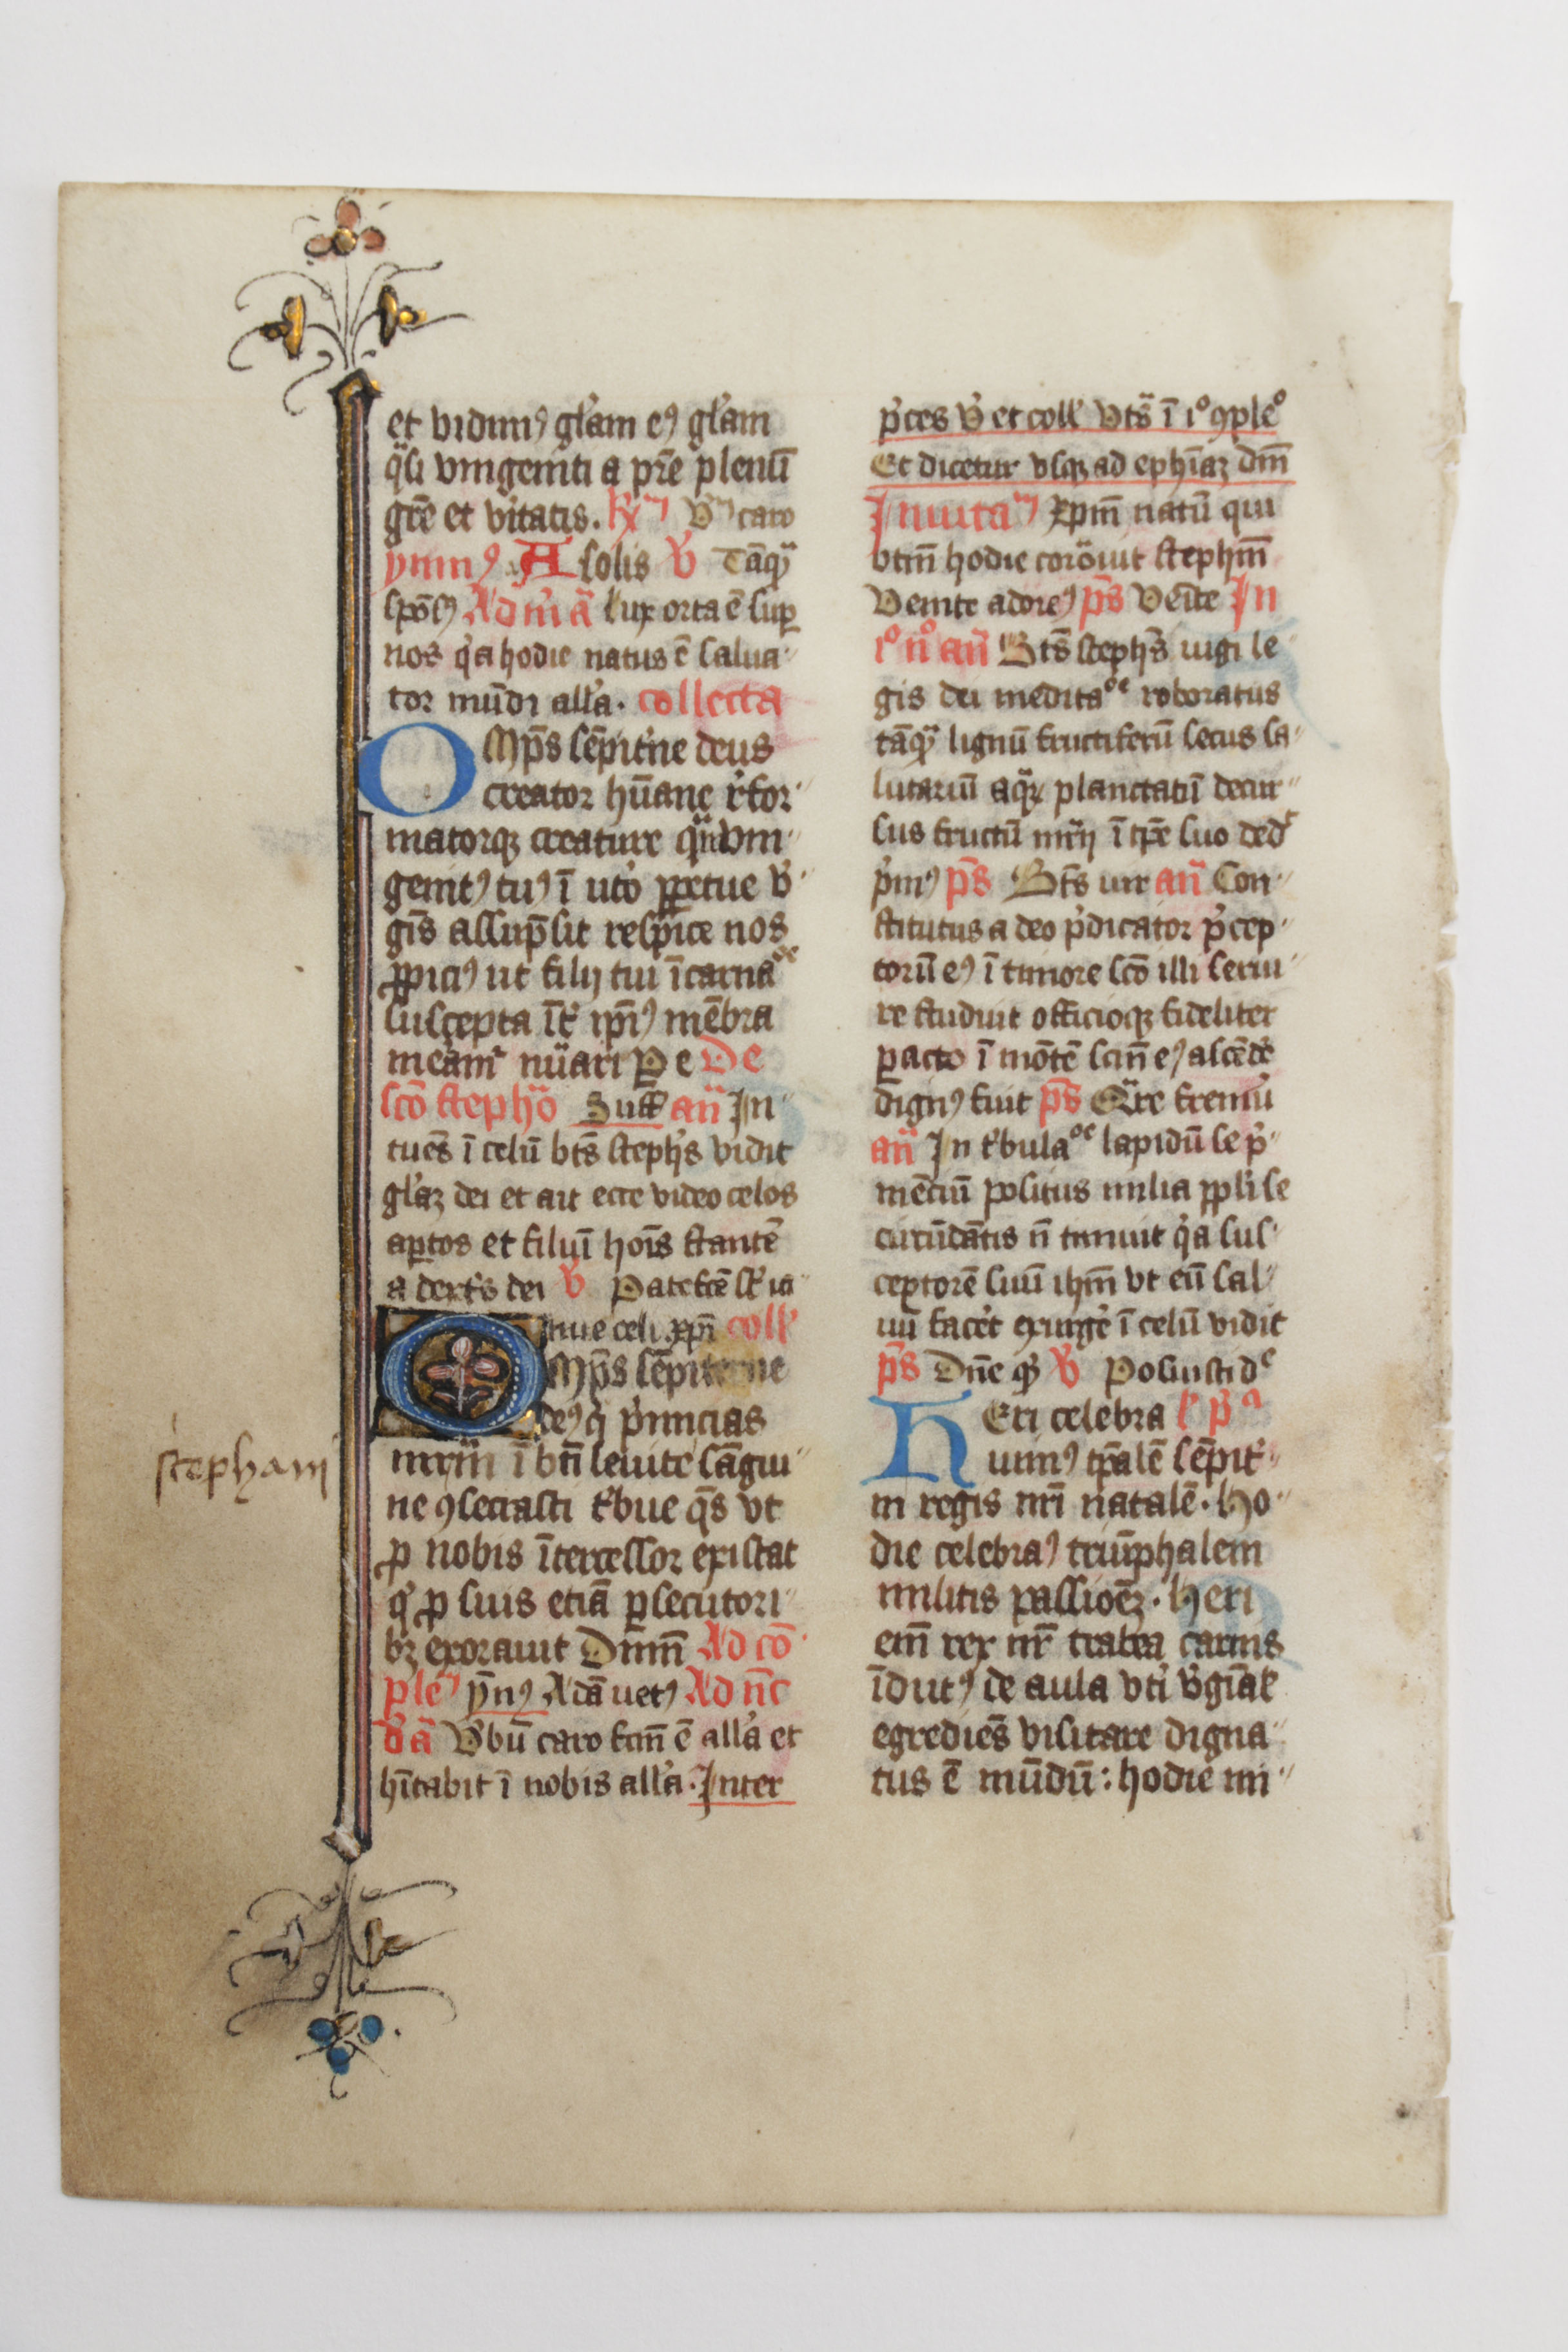 et vidim⁹ gl̄am e⁹ gl̄am
q̈si vnigeniti a pr̄e plenū
gr̄e et v̓itatis. R͞m Vm caro
ymn⁹ A solis V̓ Tāq̈
spōs⁹ Ad m̄ā Lux orta ē sup̱
nos q̓a hodie natus ē salua
tor mūdi all̓a. collecta
OMp̄s sēpit̓ne deus
creator hūane r̓for
matorqꝫ creature q̈ vni
genit⁹ tu⁹ ī uto ꝑpetue v̓
gīs assūpsit respice nos
ꝓpici⁹ ut filij tui īcarnaoe
suscepta īt̓ ip̄i⁹ mēbra
nūari Pe De
sc̄o steph̄o Suff an̄ In
tuēs ī celū bt̄s steph̓s vidit
gl̓aꝫ dei et ait ecce video celos
aꝑtos et filiū hoīs stantē
a dext̓s dei V̓ Patefcē st̓ ia
nue celi xp̄i coll̓
OMp̄s sēpiterne
de⁹ q̓ p̓micias
mr̄m̄ ī bt̄i leuite sāgui
ne ꝯsecrasti t̓bue q̄s vt
ꝓ nobis ītercessor existat
q̓ ꝓ suis etiā ꝑsecutori
bꝫ exorauit Dn̄m Ad cō
ple ȳn⁹ Adā uet⁹ Ad n̄c
d̓ā V̓bū caro fcm̄ ē all̓a et
hītabit ī nobis all̓a. Inter
stephani
p̓ces V̓ et coll̓ Vts̄ ī 1º ꝯpleº
Et dicetur vsqꝫ ad ephīaꝫ dn̄i
Inuita xp̄m natū qui
btm̄ hodie corouit stephm̄
Venite adore⁹ p̄s Veīte In
1º nº an̄ Bts̄ steph̓s iugi le
gis dei meditaoe roboratus
tāq̈ lignū fructiferū secus sa
lutariū aq̈ꝝ planctatū decur
sus fructū mr̄ij ī tp̄e suo ded̓
p̓m⁹ p̄s Bt̄s uir an̄ Con
stitutus a deo p̓dicator p̓cep
torū e⁹ ī timore sc̄o illi serui
re studuit officioqꝫ fideliter
ꝑacto ī mōtē scm̄ e⁹ ascēde̓
dign⁹ fuit p̄s Q̈re fremū
an̄ In t̓bulaoe lapidū se p̓
mēciū positus milia ppl̓i se
circūdātis n̄ timuit q̓a sus
ceptorē suū ihm̄ vt eū sal
uū face̓t exurge̓ ī celū vidit
p̄s Dn̄e q̓ V̓ Posuisti de
HEri celebra
uim⁹ tp̄alē sēpit̓
ni regis nr̄i natalē. Ho
die celebra⁹ triūphalem
militis passioēꝫ. Heri
em̄ rex nr̄ trabea carnis
īdut⁹ de aula vt̓i v̓gīal̓
egrediēs visitare digna
tus ē mūdū: hodie mi